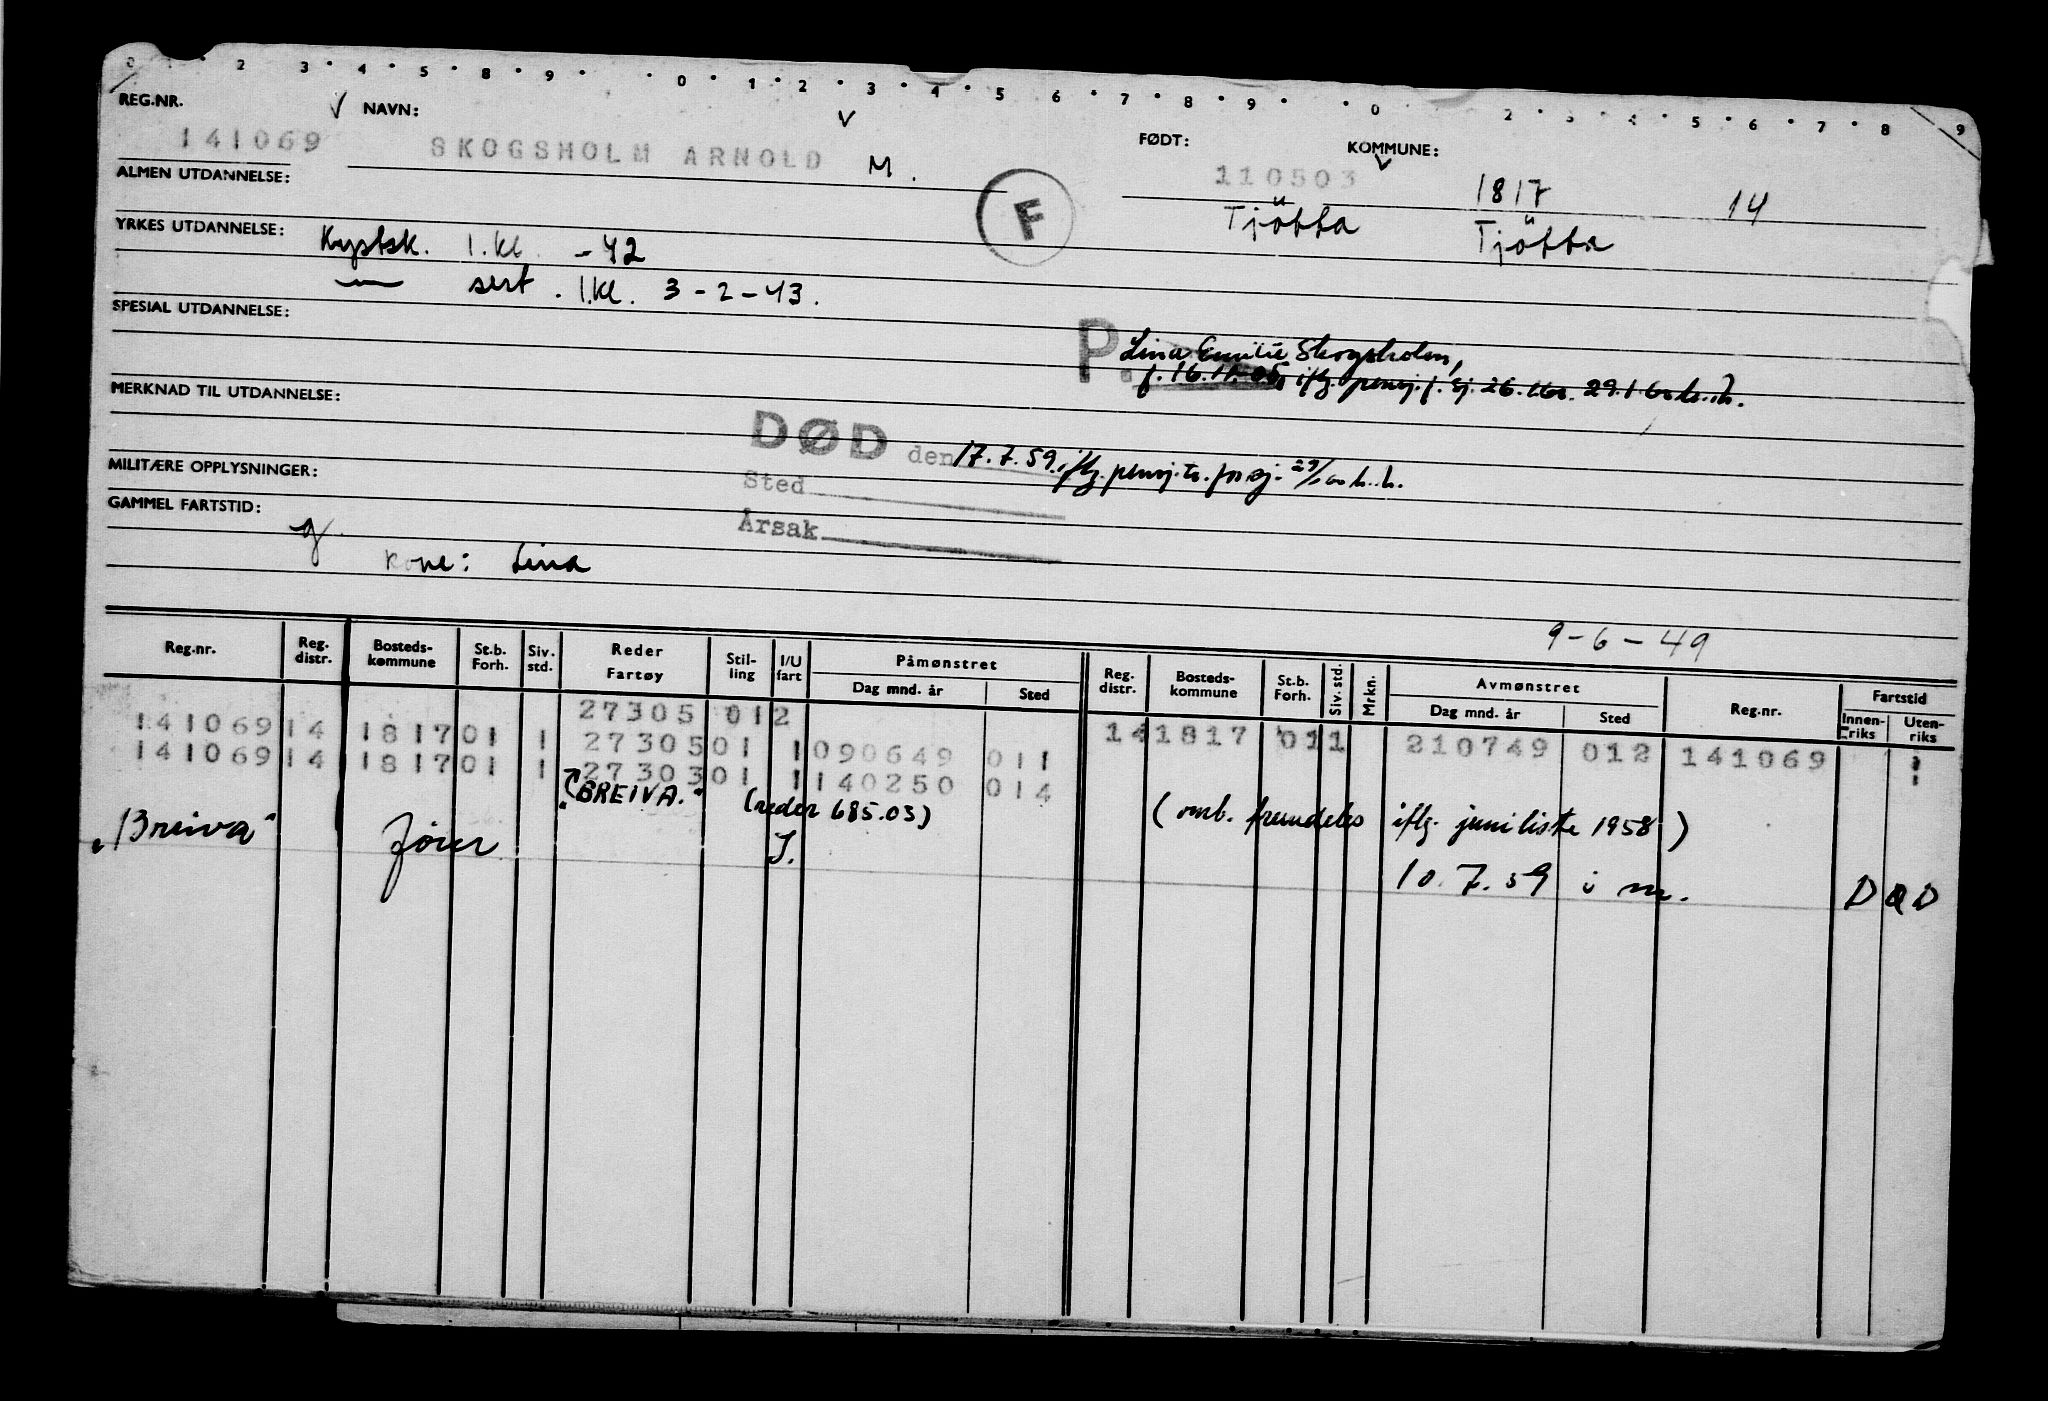 2 · 3 · 4 · 5 · 8 · 9 · · 0 · 1 · 2 · 3 · 4 · 5 6 · 7 · 8 · 9 · · 0 2 · 3 · 4 · 5 · 6 · 7 · 8 9
REG.NR. NAVN: FØDT: KOMMUNE:
141069 SKOGSHOLM ARNOLD M. 110503 1817 14
Tjötta Tjötta
ALMEN UTDANNELSE:
F
YRKES UTDANNELSE: Kystsk. 1.kl. -42
— sert. 1.kl. 3-2-43.
SPESIAL UTDANNELSE:
P. Lina Emilie Skogsholm,
f. 16.11.05 iflg. pensj. f. sj.
MERKNAD TIL UTDANNELSE:
DØD den 17.7.59. iflg. pensj.tr. for sj.
MILITÆRE OPPLYSNINGER:
Sted
GAMMEL FARTSTID:
Årsak
kone: Lina
9-6-49
Reg.nr. Reg. distr. Bosteds-kommune St.b. Forh. Siv. std. Reder Fartøy Stil-ling I/U fart Påmønstret Dag mnd. år Sted Reg. distr. Bosteds-kommune St.b. Forh. Siv. std. Mrkn. Avmønstret Dag mnd. år Sted Reg.nr. Fartstid Innen-riks Uten-riks
27305 012
141069 14 1817 01 1 27305 01 1 090649 011 14 1817 01 1 210749 012 141069
141069 14 1817 01 1 27303 01 1 140250 014
"BREIVA." (reder 685.03) (omb. fremdeles iflg. juniliste 1958)
"Breiva" fører I. 10.7.59 i m. DØD